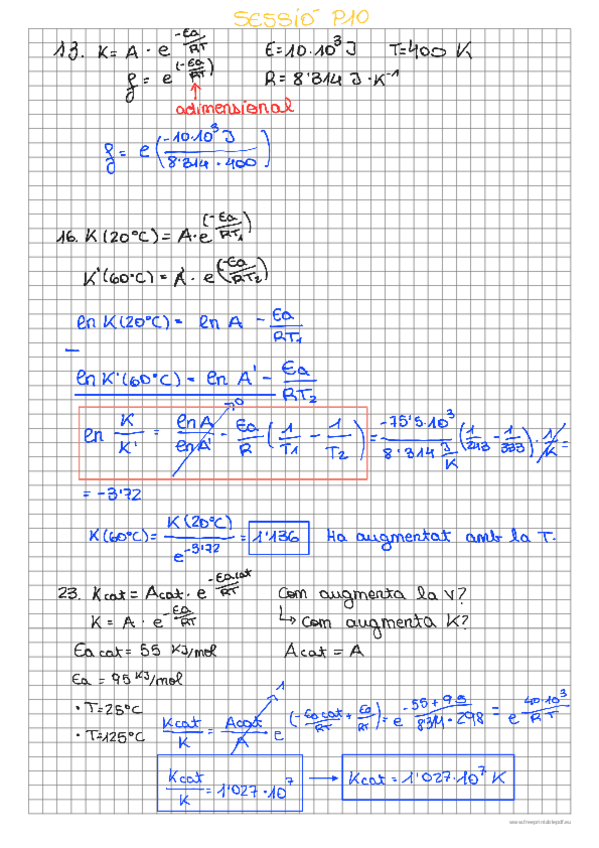 SESSIÓ P10
13. K = A · e^(-Ea/RT) E = 10·10³ J T = 400 K
f = e^(-Ea/RT) R = 8'314 J·K⁻¹
adimensional
f = e^(-10·10³ J / 8'314 · 400)
16. K(20°C) = A·e^(-Ea/RT₁)
K'(60°C) = A' · e^(-Ea/RT₂)
ln K(20°C) = ln A - Ea/RT₁
-
ln K'(60°C) = ln A' - Ea/RT₂
ln K/K' = ln A/ln A' → 0 - Ea/R (1/T1 - 1/T2) = -75'5·10³ / 8'314 J/K (1/293 - 1/333) · 1/K =
= -3'72
K(60°C) = K(20°C)/e^-3'72 = 1'136 Ha augmentat amb la T.
23. Kcat = Acat · e^(-Ea cat/RT) Com augmenta la v?
K = A · e^(-Ea/RT) ↳ Com augmenta K?
Ea cat = 55 KJ/mol Acat = A
Ea = 95 KJ/mol
· T=25°C
· T=125°C
Kcat/K = Acat/A → 1 e^(-Ea cat/RT + Ea/RT) = e^(-55+95 / 8'314 · 298) = e^(40·10³/RT)
Kcat/K = 1'027·10⁷ → Kcat = 1'027·10⁷ K